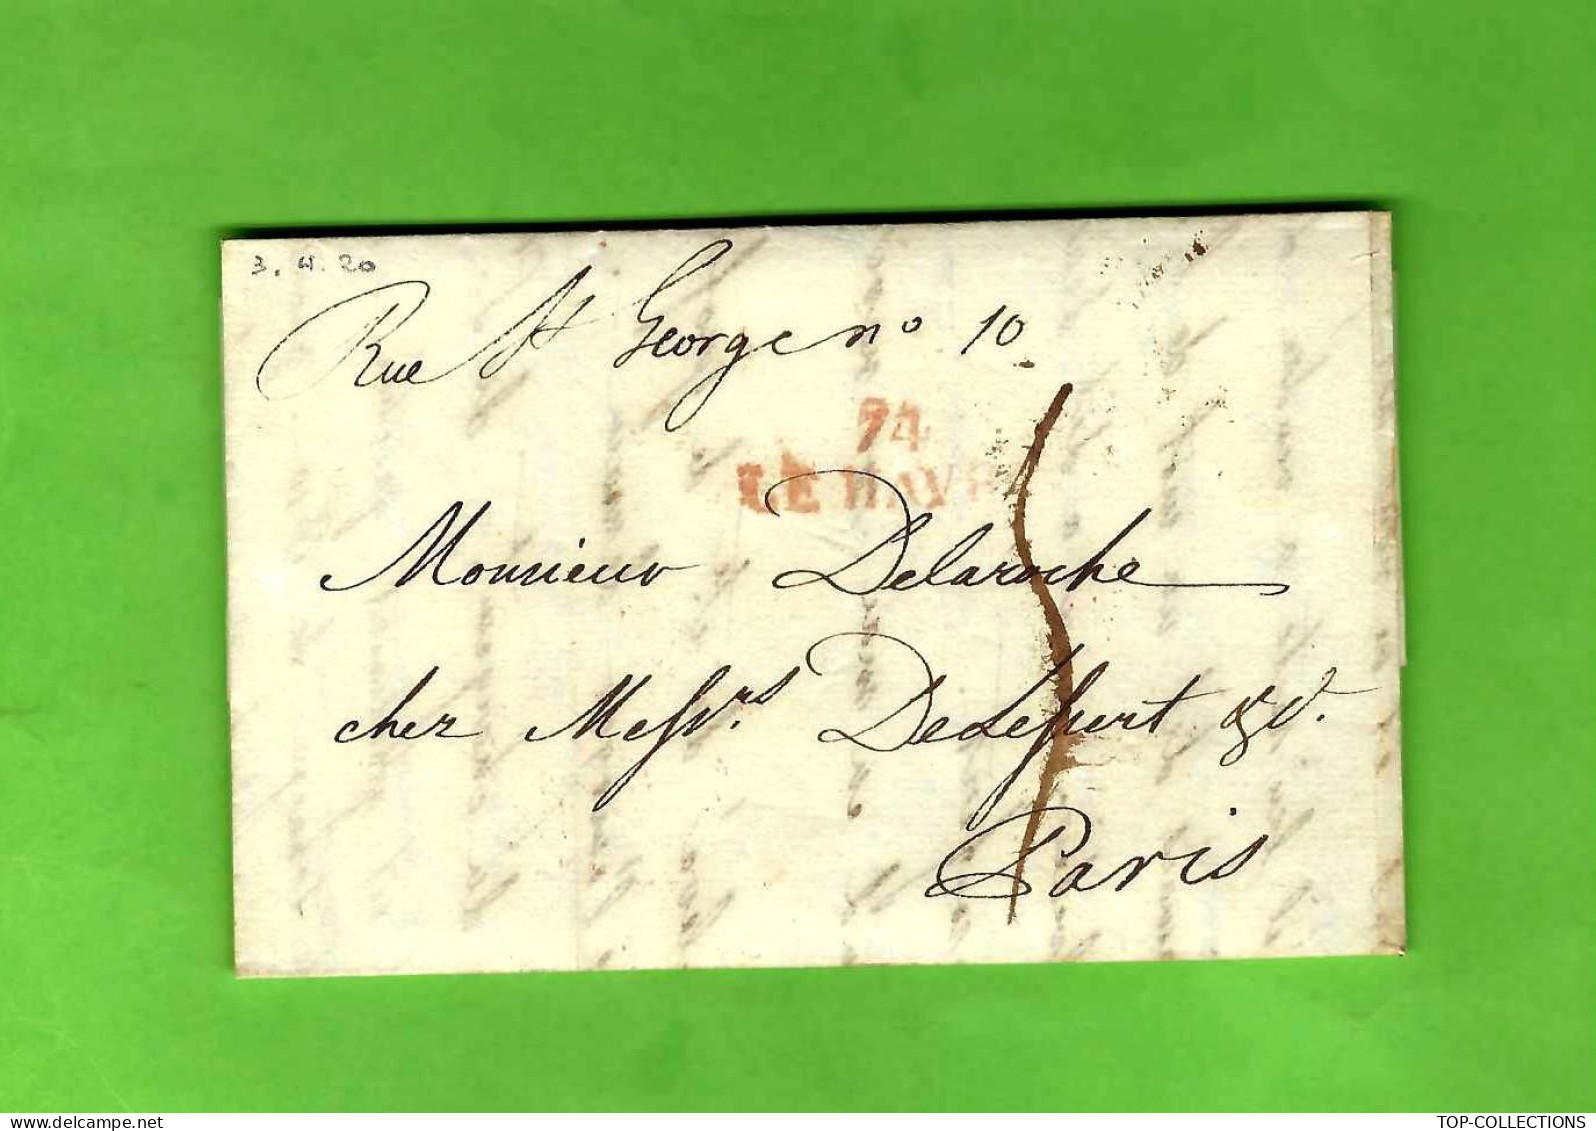 3. 4. 20
Rue St George no 10
74
LE HAVRE
Monsieur Delaroche
chez Messrs. Delessert & Co.
Paris
www.delcampe.net
TOP-COLLECTIONS